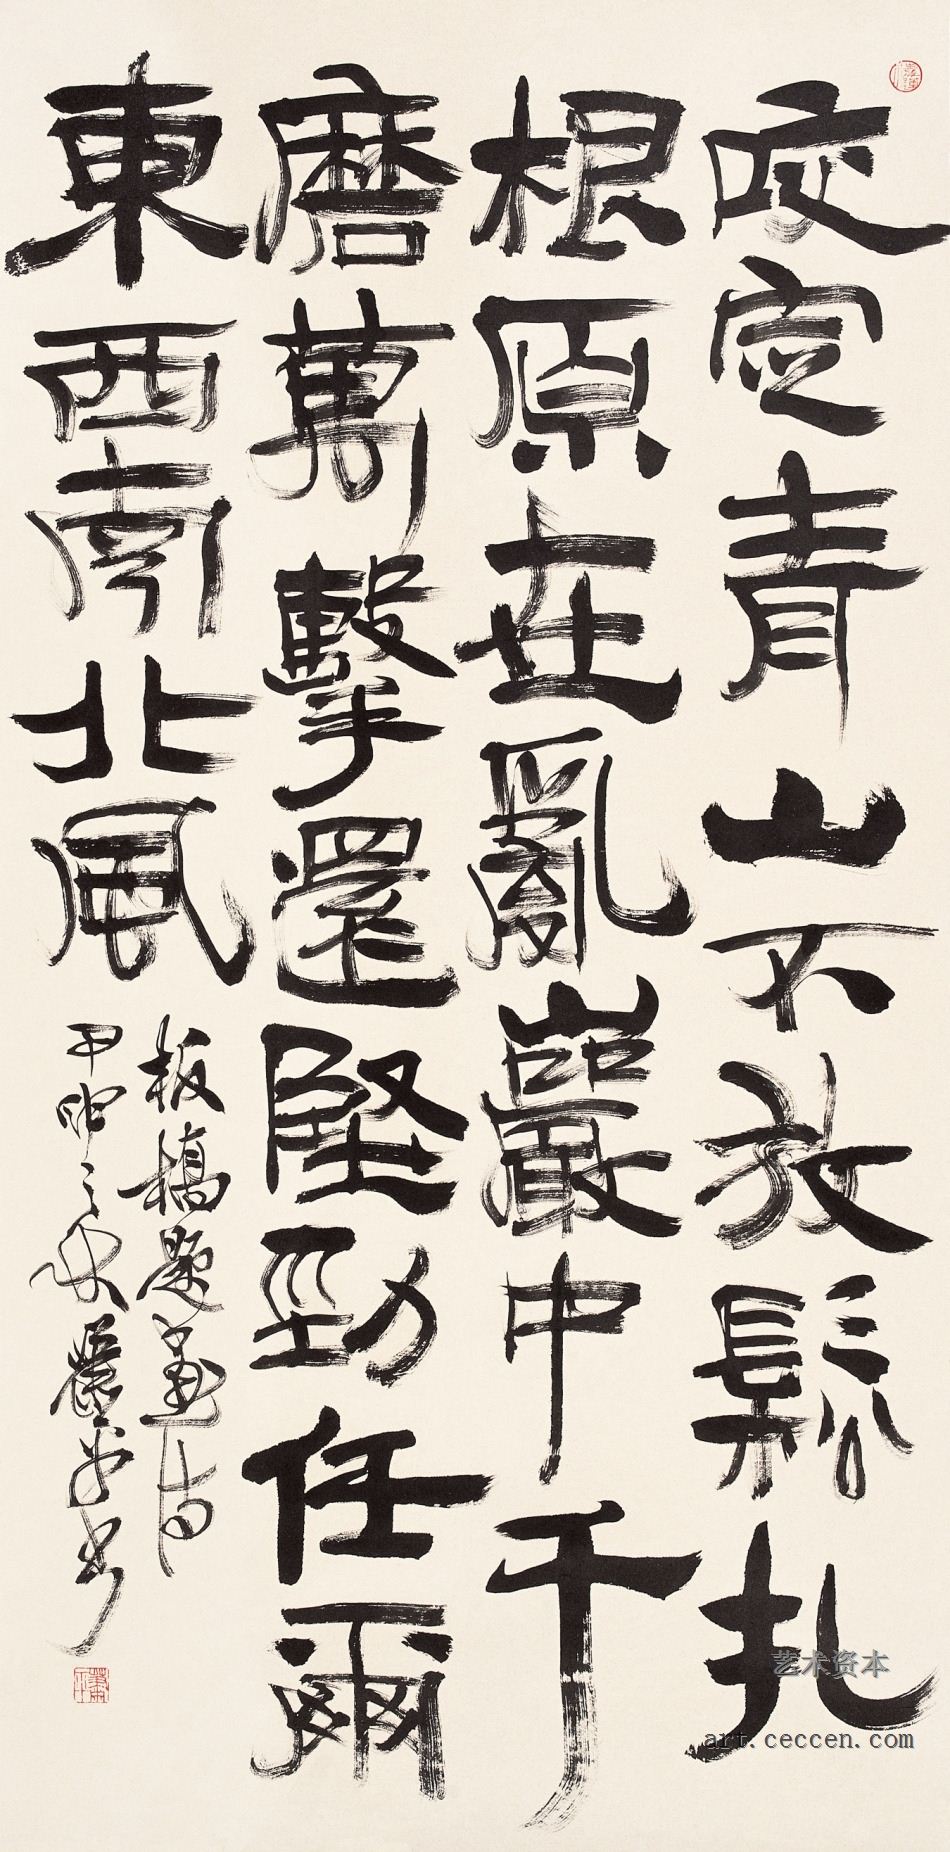 咬定青山不放鬆扎
根原在亂巖中千
磨萬擊還堅勁任爾
東西南北風
板橋題畫詩
甲申之秋蕭平書
艺术资本
art.ceccen.com